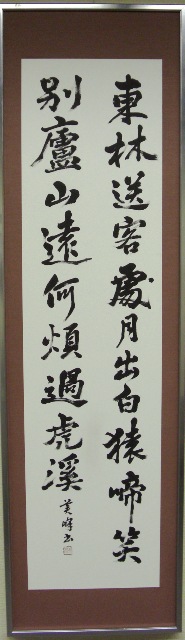 東林送客處月出白猿啼笑
別廬山遠何煩過虎溪